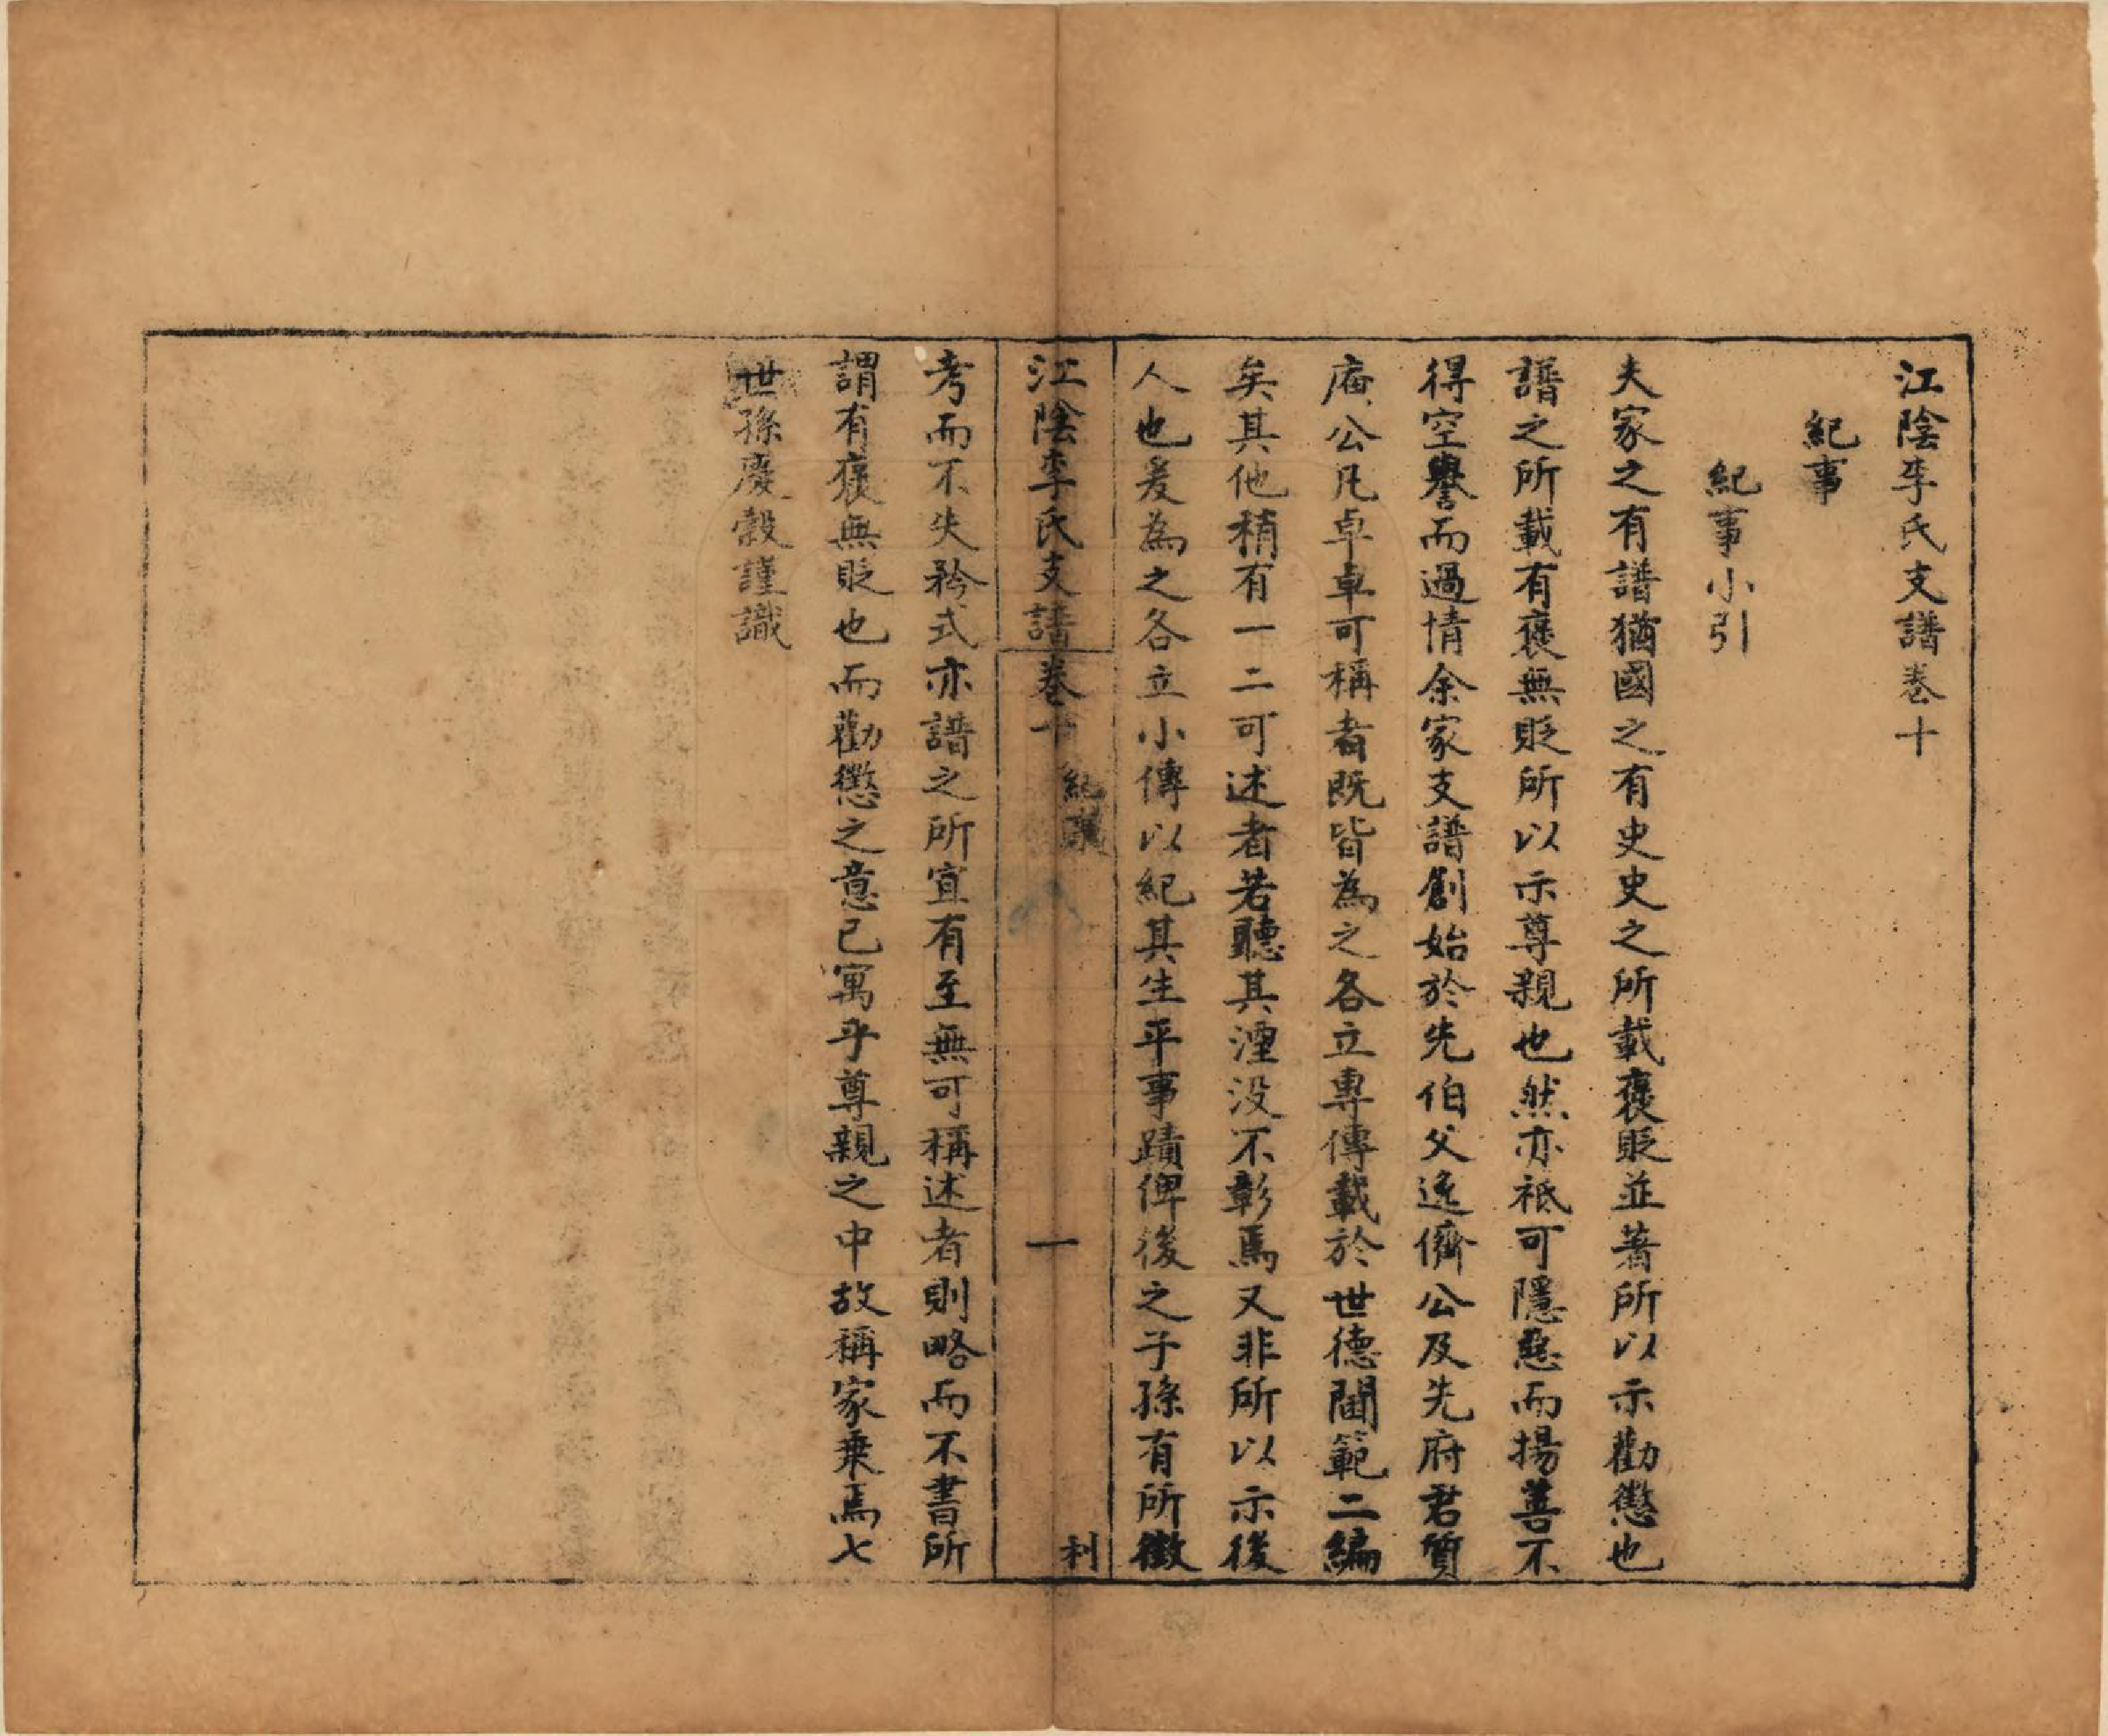 江陰李氏支譜卷十
紀事
紀事小引
夫家之有譜猶國之有史史之所載褒貶並著所以示勸懲也
譜之所載有褒無貶所以示尊親也然亦祗可隱惡而揚善不
得空譽而過情余家支譜創始於先伯父逸儕公及先府君質
庵公凡卓卓可稱者既皆為之各立專傳載於世德閫範二編
矣其他稍有一二可述者若聽其湮没不彰焉又非所以示後
人也爰為之各立小傳以紀其生平事蹟俾後之子孫有所徵
江陰李氏支譜卷十 紀事 一 利
考而不失矜式亦譜之所宜有至無可稱述者則略而不書所
謂有褒無貶也而勸懲之意已寓乎尊親之中故稱家乗焉七
世孫慶穀謹識